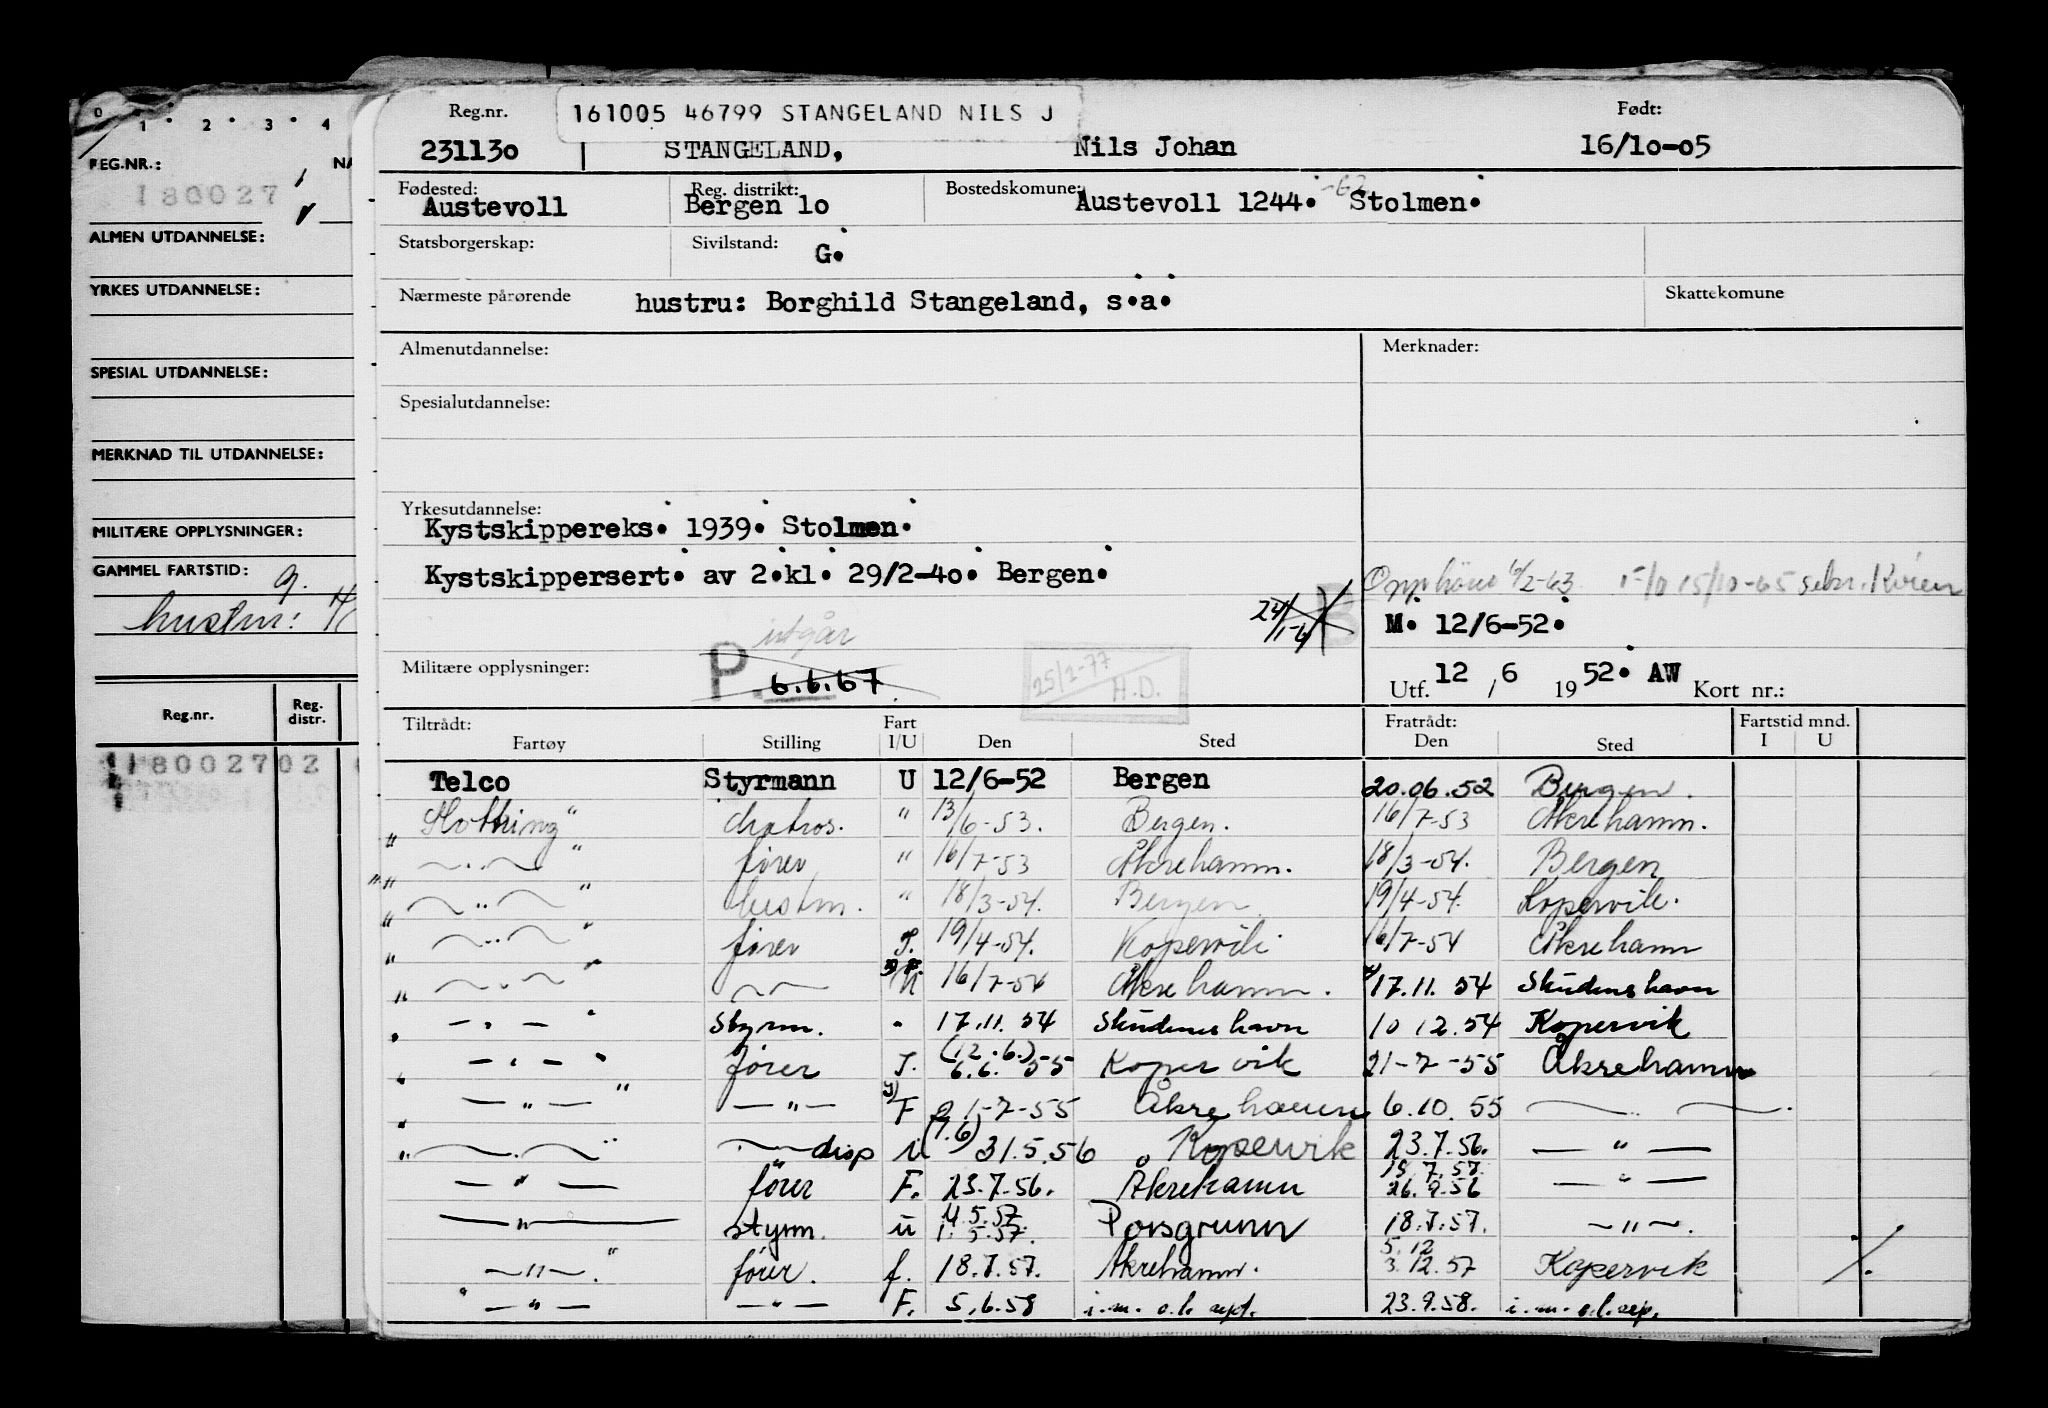 0 1 2 3 4
REG.NR.: NA
180027
ALMEN UTDANNELSE:
YRKES UTDANNELSE:
SPESIAL UTDANNELSE:
MERKNAD TIL UTDANNELSE:
MILITÆRE OPPLYSNINGER:
GAMMEL FARTSTID: g.
hustru: H
Reg.nr. Reg. distr.
18002702
Reg.nr. 161005 46799 STANGELAND NILS J Født:
231130 STANGELAND, Nils Johan 16/10-05
Fødested: Reg. distrikt: Bostedskomune: -62
Austevoll Bergen 10 Austevoll 1244. Stolmen.
Statsborgerskap: Sivilstand: G.
Nærmeste pårørende hustru: Borghild Stangeland, s.a. Skattekomune
Almenutdannelse: Merknader:
Spesialutdannelse:
Yrkesutdannelse:
Kystskippereks. 1939. Stolmen.
Kystskippersert. av 2.kl. 29/2-40. Bergen.
15/10-65
24/1-6 B M. 12/6-52.
utgår
Militære opplysninger: P. 6.6.67. 25/2-77 H.D. Utf. 12/6 1952. AW Kort nr.:
Tiltrådt: Fart Fratrådt: Fartstid mnd.
Fartøy Stilling I/U Den Sted Den Sted I U
Telco Styrmann U 12/6-52 Bergen 20.06.52 Bergen.
" " Matros. " 13/6-53. Bergen. 16/7-53 Åkrehamn.
" — . — " fører " 16/7-53 Åkrehamn. 18/3-54. Bergen
" — .. — " bestm. " 18/3-54. Bergen 19/4-54. Kopervik.
" — .. — " fører I. 19/4-54. Kopervik 16/7-54 Åkrehamn
" — . — " — — U 16/7-54 Åkrehamn. 17.11.54 Skudeneshavn
" — . — " Styrm. " 17.11.54 Skudeneshavn 10 12.54 Kopervik
" — . — " fører I. (12.6.) 6.6.55 Kopervik 21-7-55 Åkrehamn
" — " — " — " — F 21-7-55 Åkrehamn 6.10.55 — " —
" — . — " — disp u (7.6) 31.5.56 Kopervik 23.7.56. — " —
— " — fører F. 23.7.56. Åkrehamn 26.9.56 — " —
— " — styrm. u 4.5.57 1.5.57. Porsgrunn 18.7.57. — " —.
— " —. " fører. f. 18.7.57. Åkrehamn. 5.12 3.12.57 Kopervik
" — " — — " — F. 5.6.58 i.m. o.l. 23.9.58. i.m. o.l.